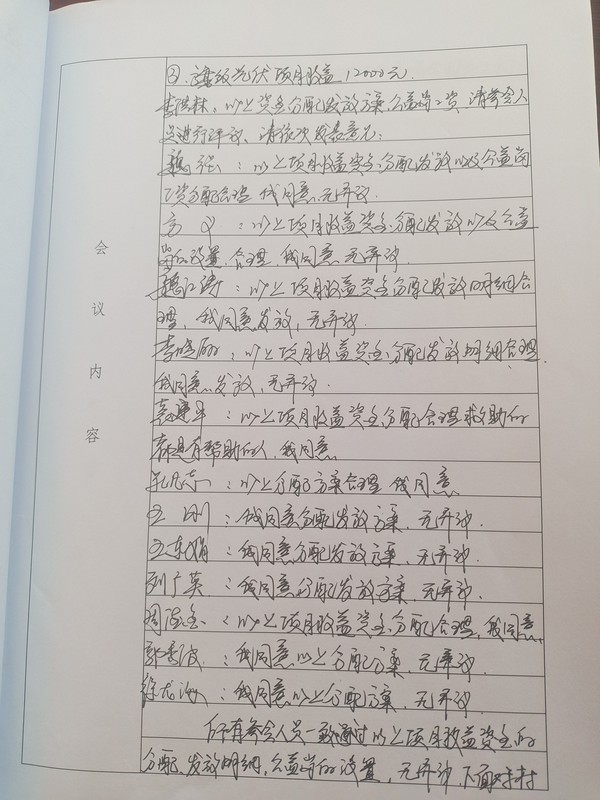 ②.、县级光伏项目收益12000元.
李洪林：以上资金分配发放方案，公益岗工资，请参会人
员进行评议，请依次发表意见：
魏强：以上项目收益资金分配发放以及公益岗
工资分配合理，我同意，无异议.
方义：以上项目收益资金分配发放以及公益
岗的设置，合理，我同意，无异议.
魏江涛：以上项目收益资金分配发放明细合
理，我同意发放，无异议.
李晓丽：以上项目收益资金分配发放明细合理.
我同意发放，无异议.
：以上项目收益资金分配合理，救助的
都是有帮助的人，我同意.
孔凡志：以上分配方案合理，我同意.
王刚：我同意分配发放方案，无异议.
王东娟：我同意分配发放方案，无异议.
刘广英：我同意分配发放方案，无异议.
周金：以上项目收益资金分配合理，我同意.
郭秀波：我同意以上分配方案，无异议.
徐龙海：我同意以上分配方案，无异议.
所有参会人员一致通过以上项目收益资金的
分配，发放明细，公益岗的设置，无异议，下面对村
会议内容